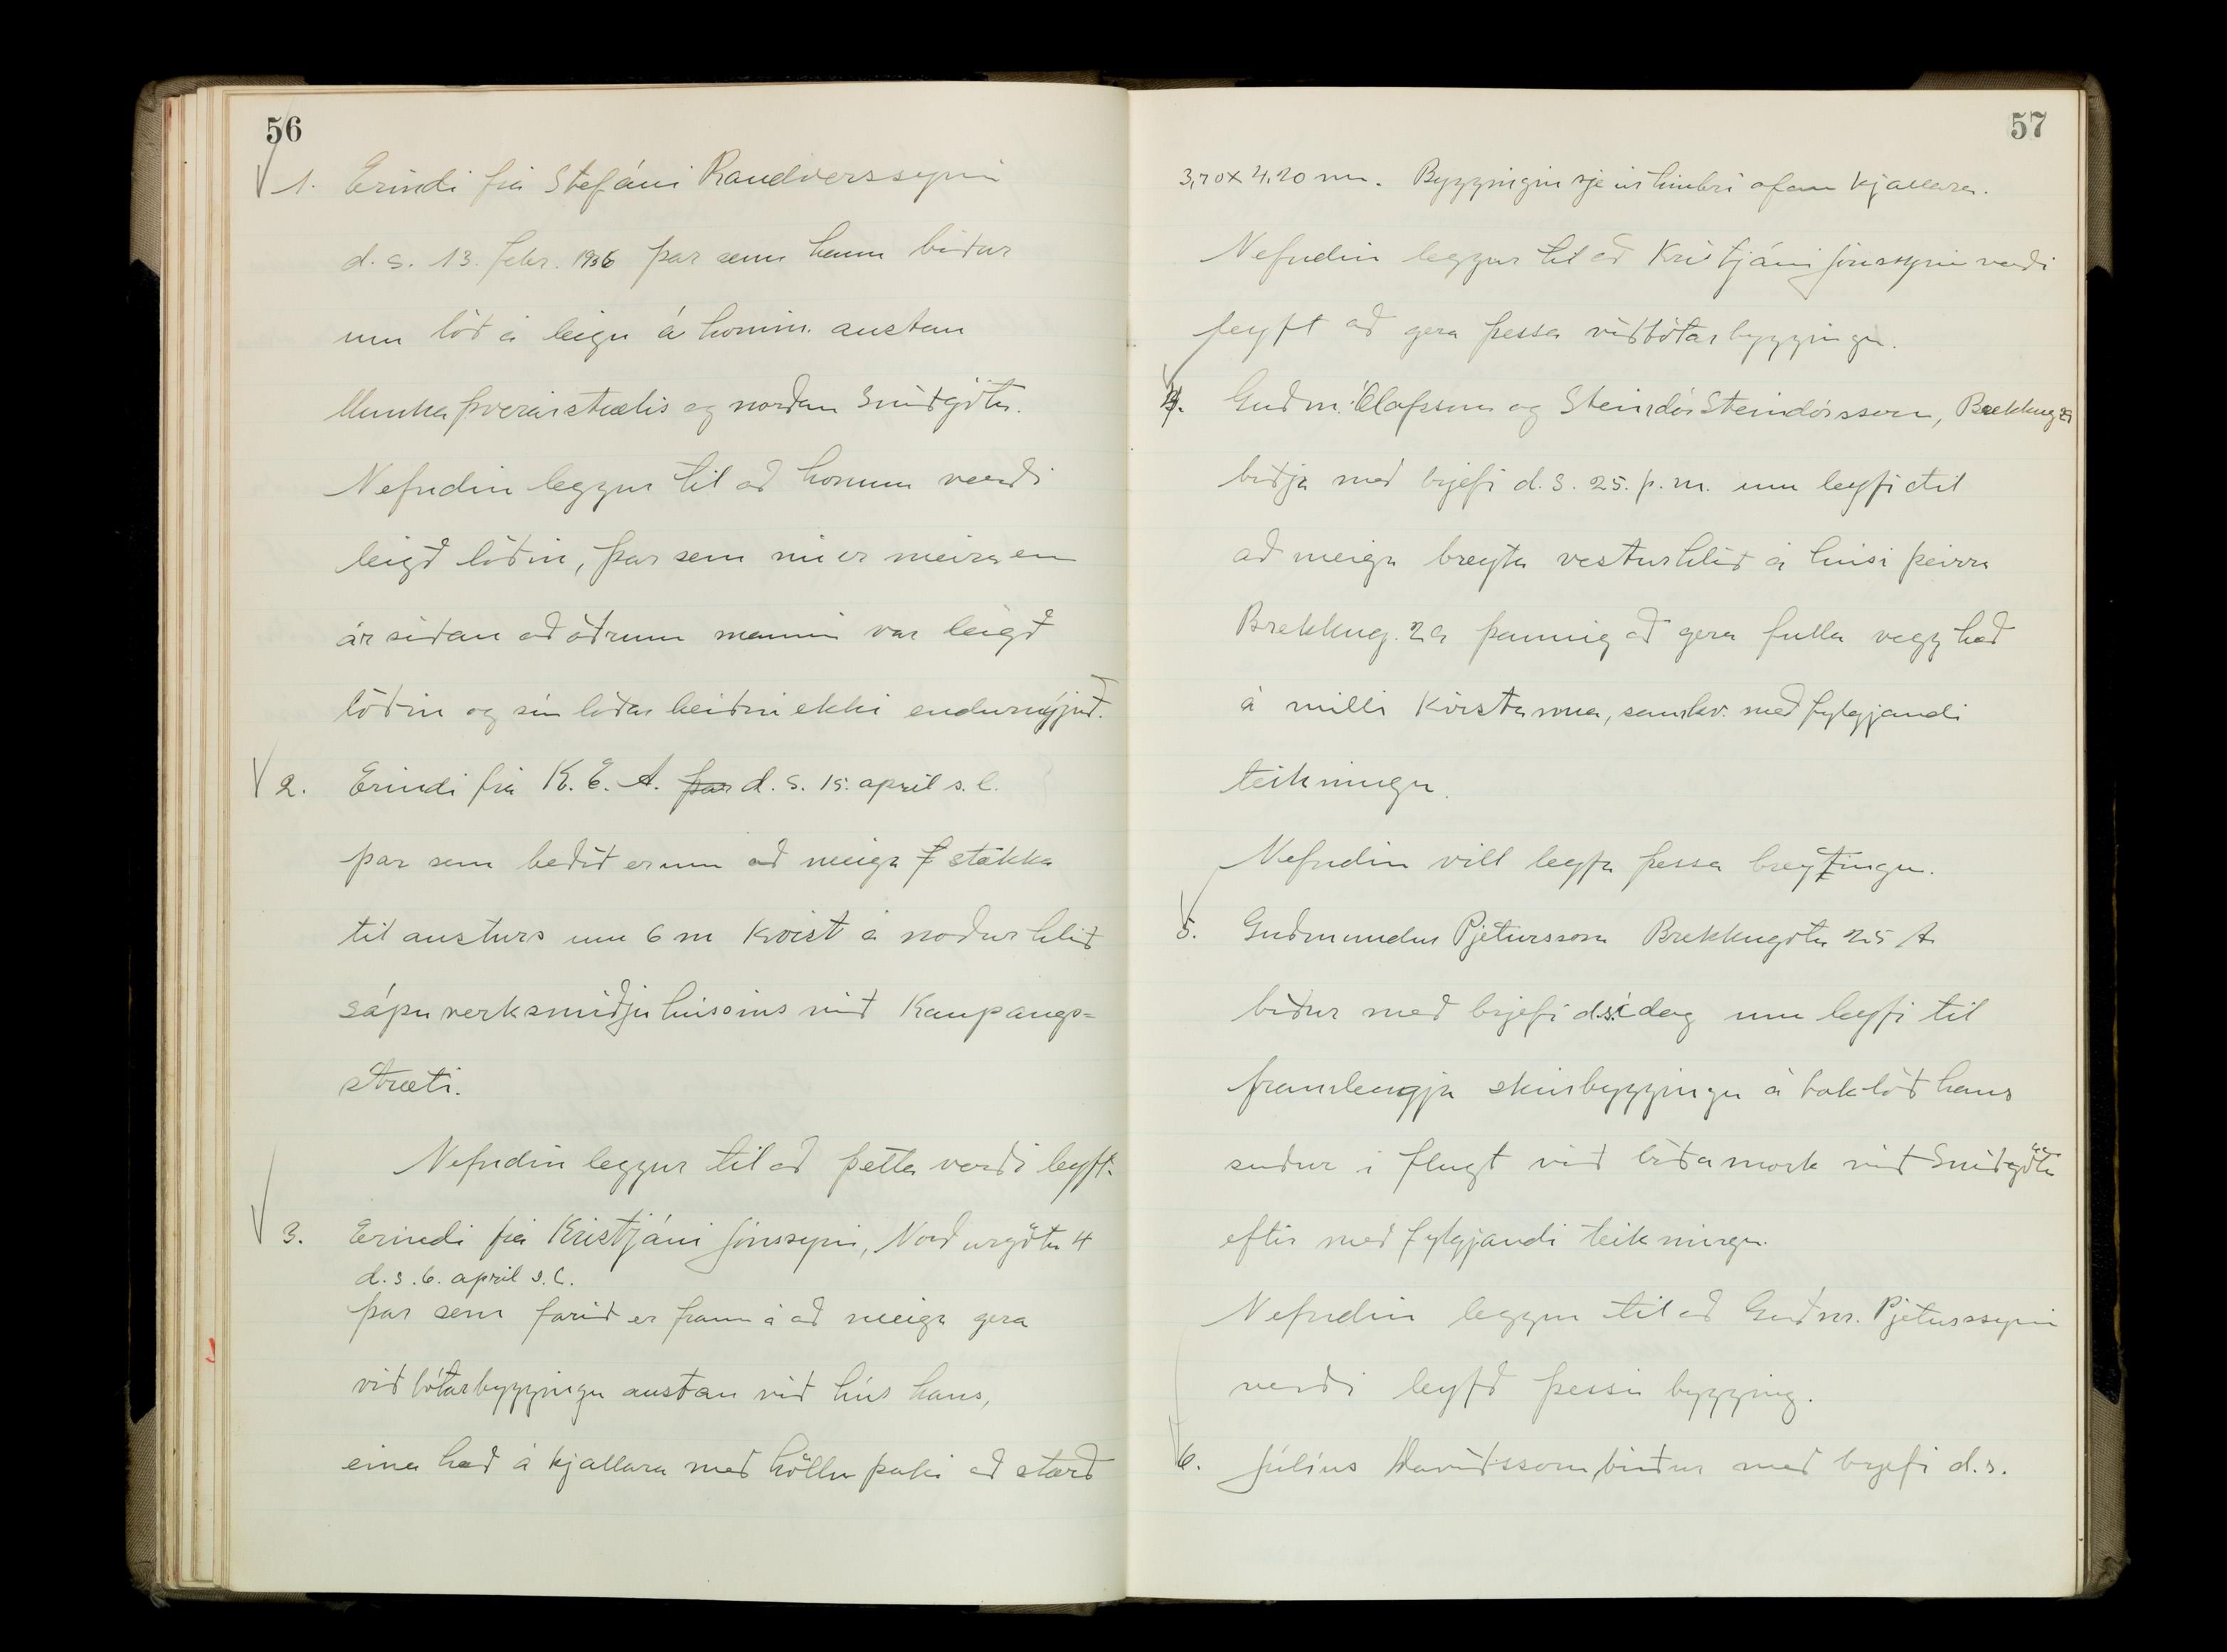 56
1. Erindi frá Stefáni Randverssyni
d.s. 13. febr. 1936 þar sem hann biður
um lóð á leigu á hornin. austan
Munkaþverárstrætis og norðan Sniðgötu.
Nefndin leggur til að honum verði
leigð lóðin, þar sem nú er meira en
ár síðan að öðrum manni var leigð
lóðin og sú lóðarbeiðni ekki endurnýjuð.
2. Erindi frá K.E.A. þar d.s. 15. april s.l.
þar sem beðið er um að meiga stækka
til austurs um 6 m kvist á norðurhlið
sápuverksmiðjuhússins við Kaupangs=
stræti.
Nefndin leggur til að þetta verði leyft.
3. Erindi frá Kristjáni Jónssyni, Norðurgötu 4
d.s. 6. april s.l.
þar sem farið er fram á að meiga gera
viðbótarbyggingu austan við hús hans,
eina hæð á kjallara með höllu þaki að stærð
57
3,70 x 4,20 m. Byggingin sje úr timbri ofan kjallara.
Nefndin leggur til að Kristjáni Jónssyni verði
leyft að gera þessa viðbótarbyggingu.
4. Guðm. Ólafsson og Steindór Steindórsson, Brekkug 29
biðja með brjefi d.s. 25. þ.m. um leyfi til
að meiga breyta vesturhlið á húsi þeirra
Brekkug. 29 þannig að gera fulla vegghæð
á milli kvistanna, samkv. meðfylgjandi
teikningu.
Nefndin vill leyfa þessa breytingu.
5. Guðmundur Pjetursson Brekkugötu 25 A
biður með brjefi d.s. í dag um leyfi til
framlengja skúrbyggingu á baklóð hans
suður í flugt við lóðamörk við Sniðgötu
eftir meðfylgjandi teikningu.
Nefndin leggur til að Guðm. Pjeturssyni
verði leyfð þessi bygging.
6. Júlíus Davíðsson, biður með brjefi d.s.